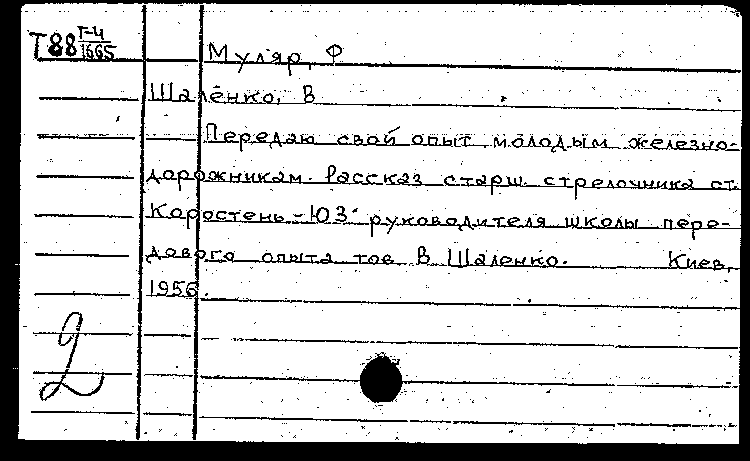 Т88 Г-4/1665
Муляр, Ф
Шаленко, В
Передаю свой опыт молодым железно-
дорожникам. Рассказ старш. стрелочника ст.
Коростень-ЮЗ- руководителя школы пере-
дового опыта тов В Шаленко. Киев,
1956.
2